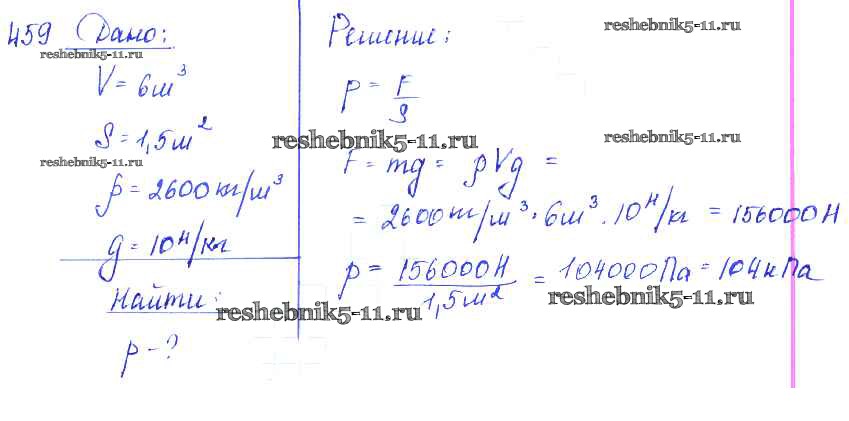 459 Дано:
reshebnik5-11.ru
V = 6м³
S = 1,5м²
reshebnik5-11.ru
ρ = 2600кг/м³
g = 10Н/кг
Найти:
p - ?
Решение:
reshebnik5-11.ru
p = F/S
reshebnik5-11.ru
reshebnik5-11.ru
F = mg = ρVg =
= 2600кг/м³ · 6м³ · 10Н/кг = 156000Н
p = 156000Н/1,5м² = 104000Па = 104кПа
reshebnik5-11.ru
reshebnik5-11.ru